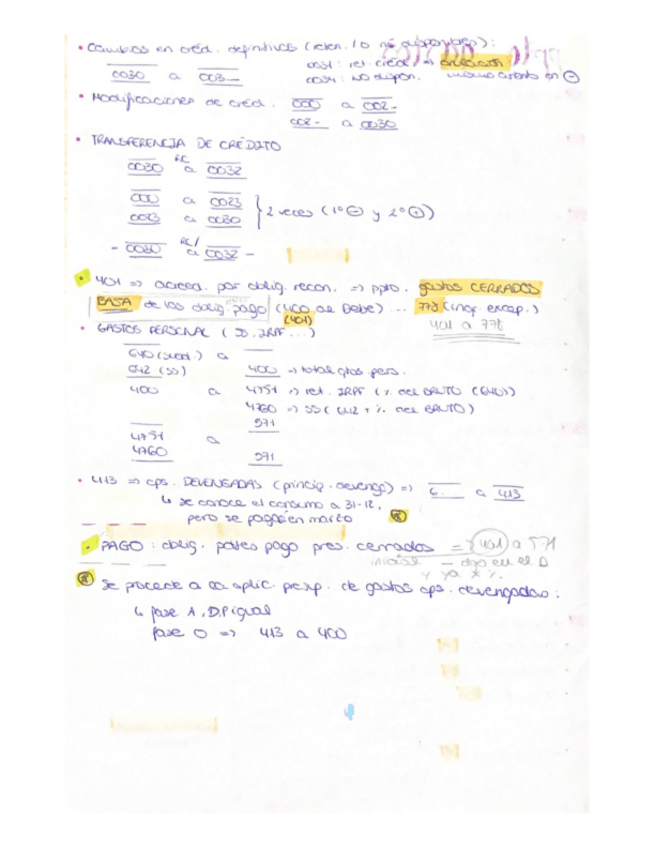 • Cambios en créd. definitivos (reten. / o no disponibles):
0030 a 003— 0031: ret. créd. → anulación:
0034: no dispon. mismo asiento en ⊖
• Modificaciones de créd. 000 a 002-
002- a 0030
• TRANSFERENCIA DE CRÉDITO
0030 RC a 0032
000 a 0023
0023 a 0030 } 2 veces (1º ⊖ y 2º ⊕)
- 0030 RC/ a 0032 -
• 401 => acreed. por oblig. recon. => ppto. gastos CERRADOS
BAJA de las oblig. pago (400 al Debe) ... 778 (ing. excep.)
(401) 401 a 778
• GASTOS PERSONAL (SS, IRPF ...)
640 (sueld.) a
642 (SS) 400 => total gtos pers.
400 a 4751 => ret. IRPF (% del BRUTO (640))
4760 => SS (642 + % del BRUTO)
571
4751 a
4760 571
• 413 => ops. DEVENGADAS (princip. devengo) => 6. a 413
↳ se conoce el consumo a 31-12,
pero se pagan en marzo
• PAGO: oblig. ptes pago pres. cerrados => 401 a 571
inicial — dgo en el D
y ya x %.
Se procede a la aplic. presup. de gastos ops. devengadas:
↳ fase A, D, P igual
fase O => 413 a 400